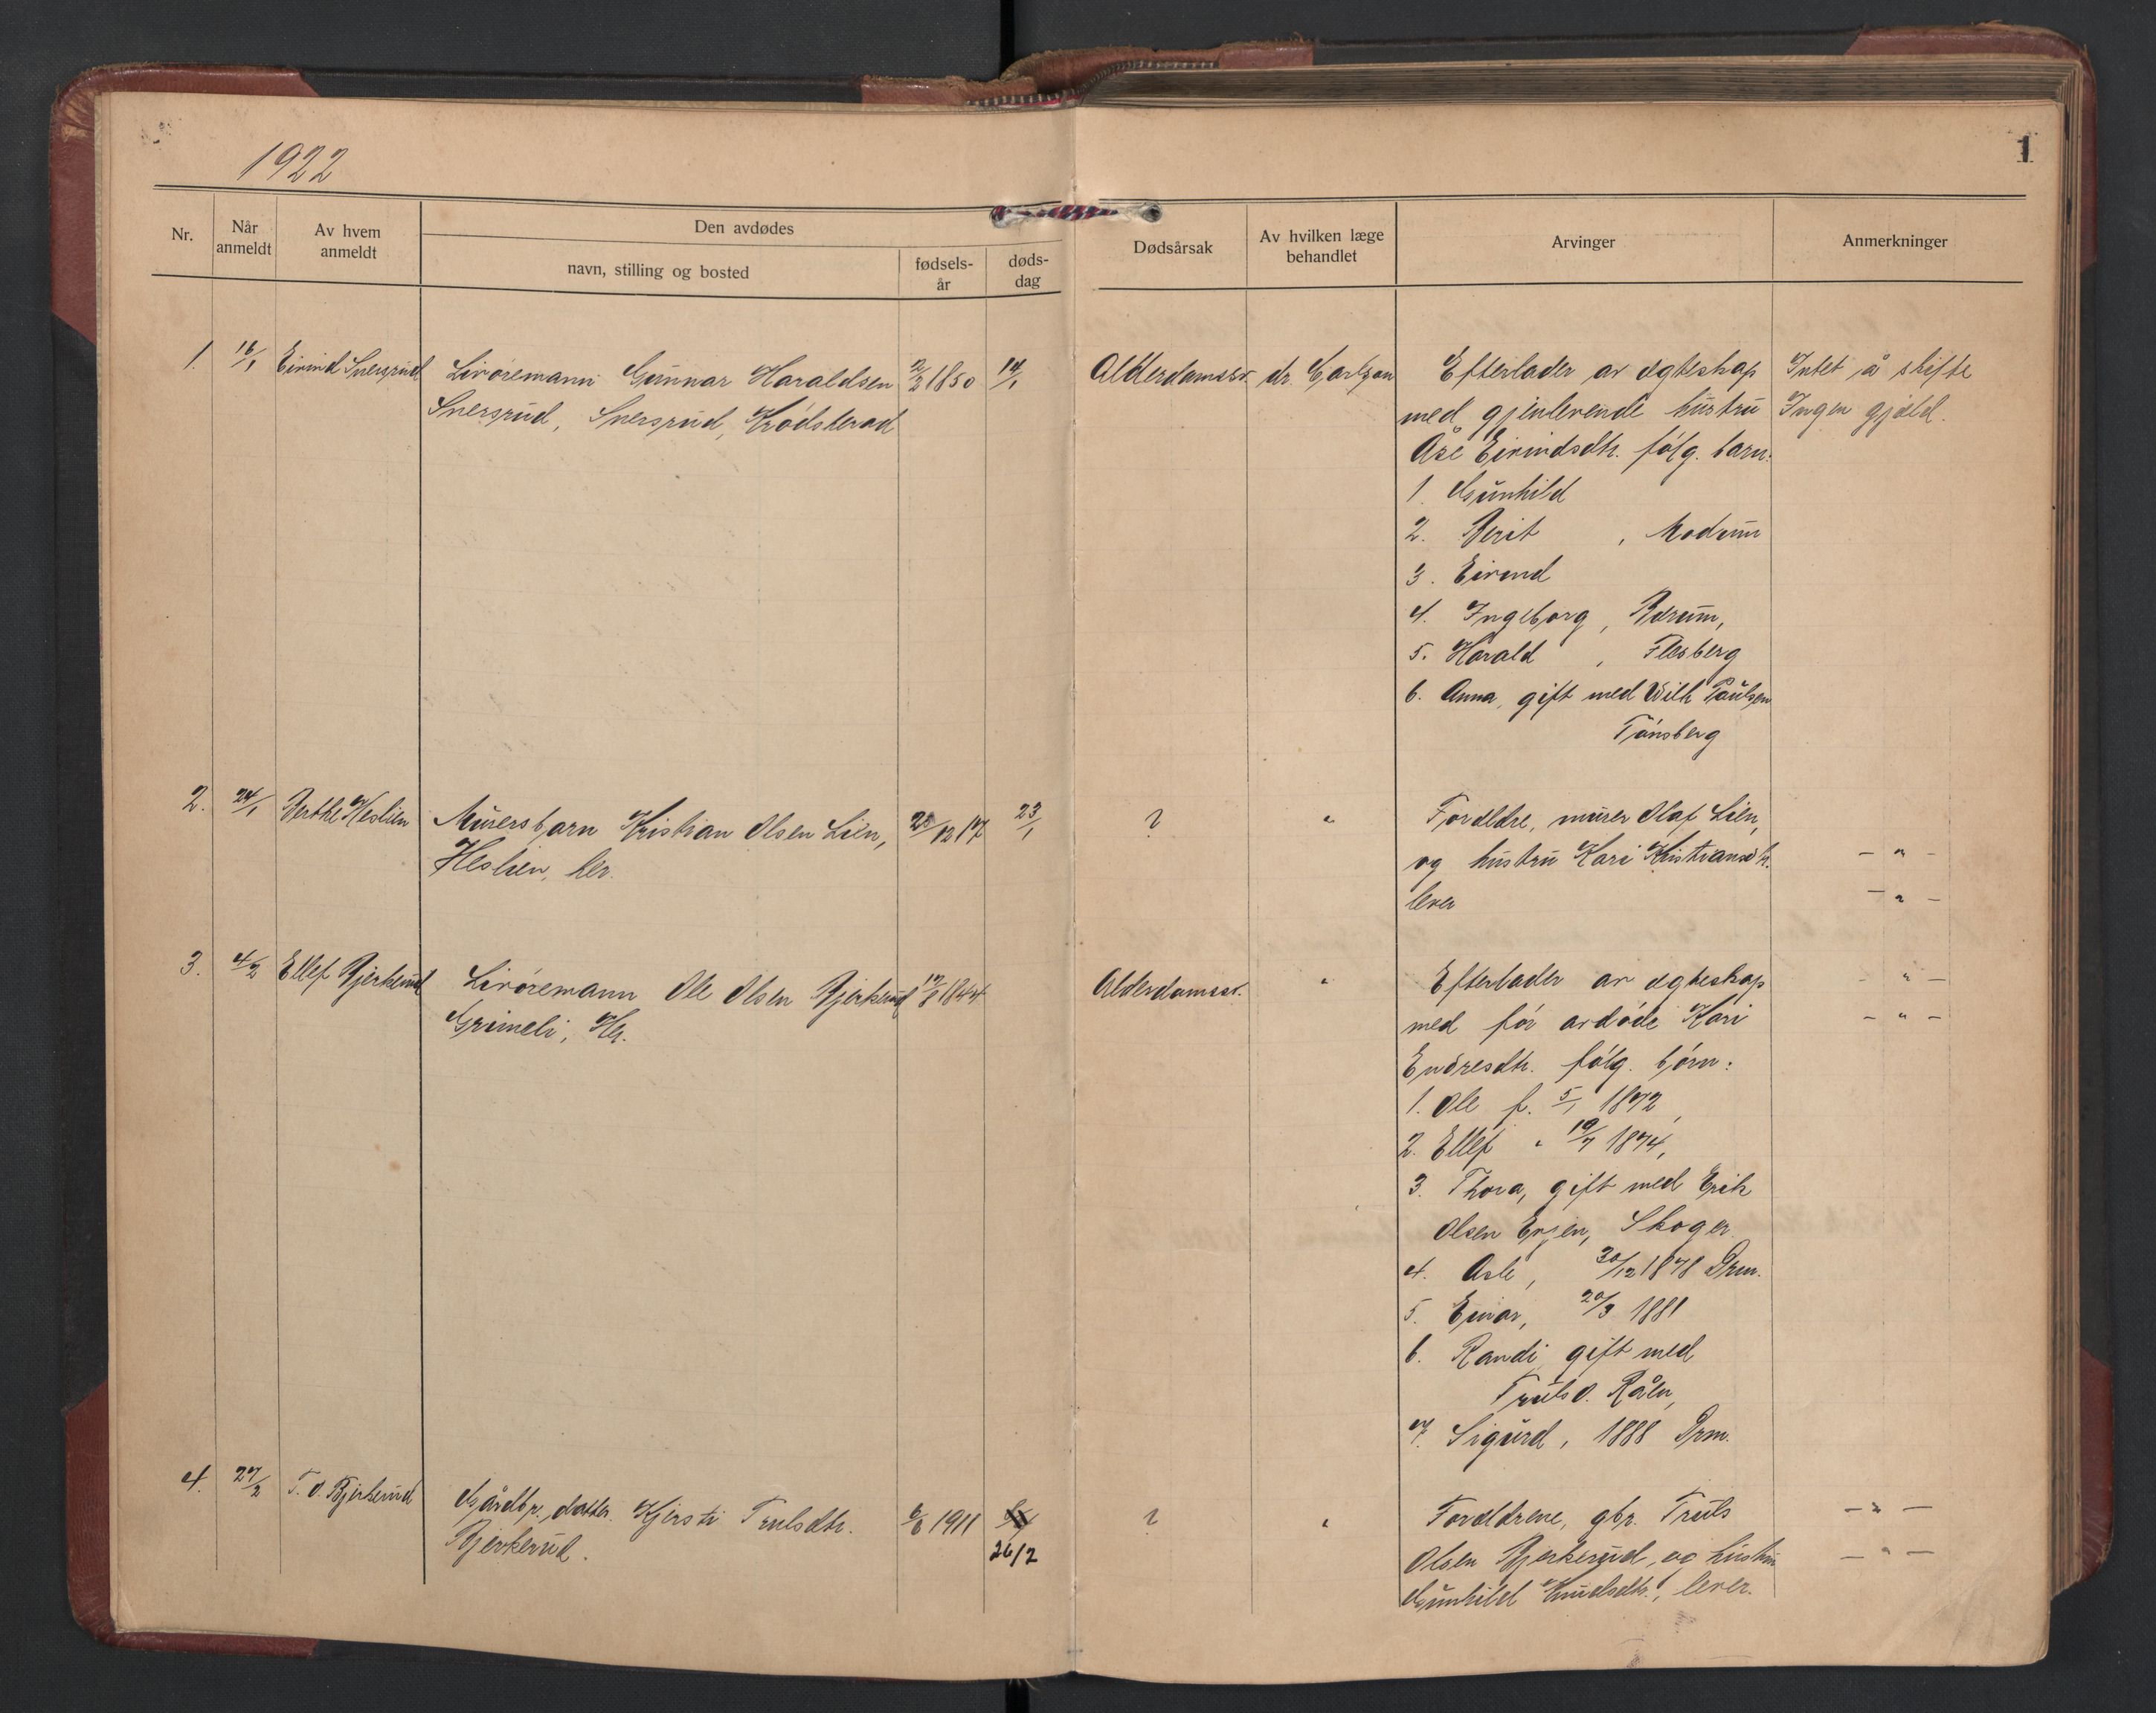 1922
1
Nr.
Når anmeldt
Av hvem anmeldt
Den avdødes
navn, stilling og bosted
fødsels-år
døds-dag
Dødsårsak
Av hvilken læge behandlet
Arvinger
Anmerkninger
1. 16/1 Eivind Snersrud Livøremann Gunnar Haraldsen 2/2 1850 14/1 Alderdomssv. dr. Carlsen
Snersrud, Snersrud, Krødsherad
Efterlader av ægteskap Intet å skifte
med gjenlevende hustru Ingen gjæld.
Åse Eivindsdtr. følg. barn:
1. Gunhild
2. Berit , Modum
3. Eivind
4. Ingeborg, Bærum,
5. Harald , Flesberg
6. Anna, gift med Wilh Paulsen
Tønsberg
2. 24/1 Berthe Heslien Murersbarn Kristian Olsen Lien, 20/12 17 23/1 ? "
Heslien, her.
Forældre, murer Olaf Lien,
og hustru Kari Kristiansdtr. - " -
lever - " -
3. 4/2 Ellef Bjerkerud Livøremann Ole Olsen Bjerkerud 17/8 1844 Alderdomssv. "
Grimeli, Her.
Efterlader av ægteskap - " -
med før avdøde Kari - " -
Endresdtr. følg. børn:
1. Ole f. 5/1 1872,
2. Ellef " 19/7 1874,
3. Thora, gift med Erik
Olsen Ersen, Skoger.
4. Asle, 30/12 1878 Drm.
5. Einar, 20/3 1881
6. Randi, gift med
Truls O. Råen,
7. Sigurd, 1888 Drm.
4. 27/2 T. O. Bjerkerud Gårdbr. datter Kjersti Trulsdtr. 6/8 1911 26/2 ? "
Bjerkerud.
Forældrene, gbr. Truls - " -
Olsen Bjerkerud, og hustru - " -
Gunhild Knudsdtr., lever.